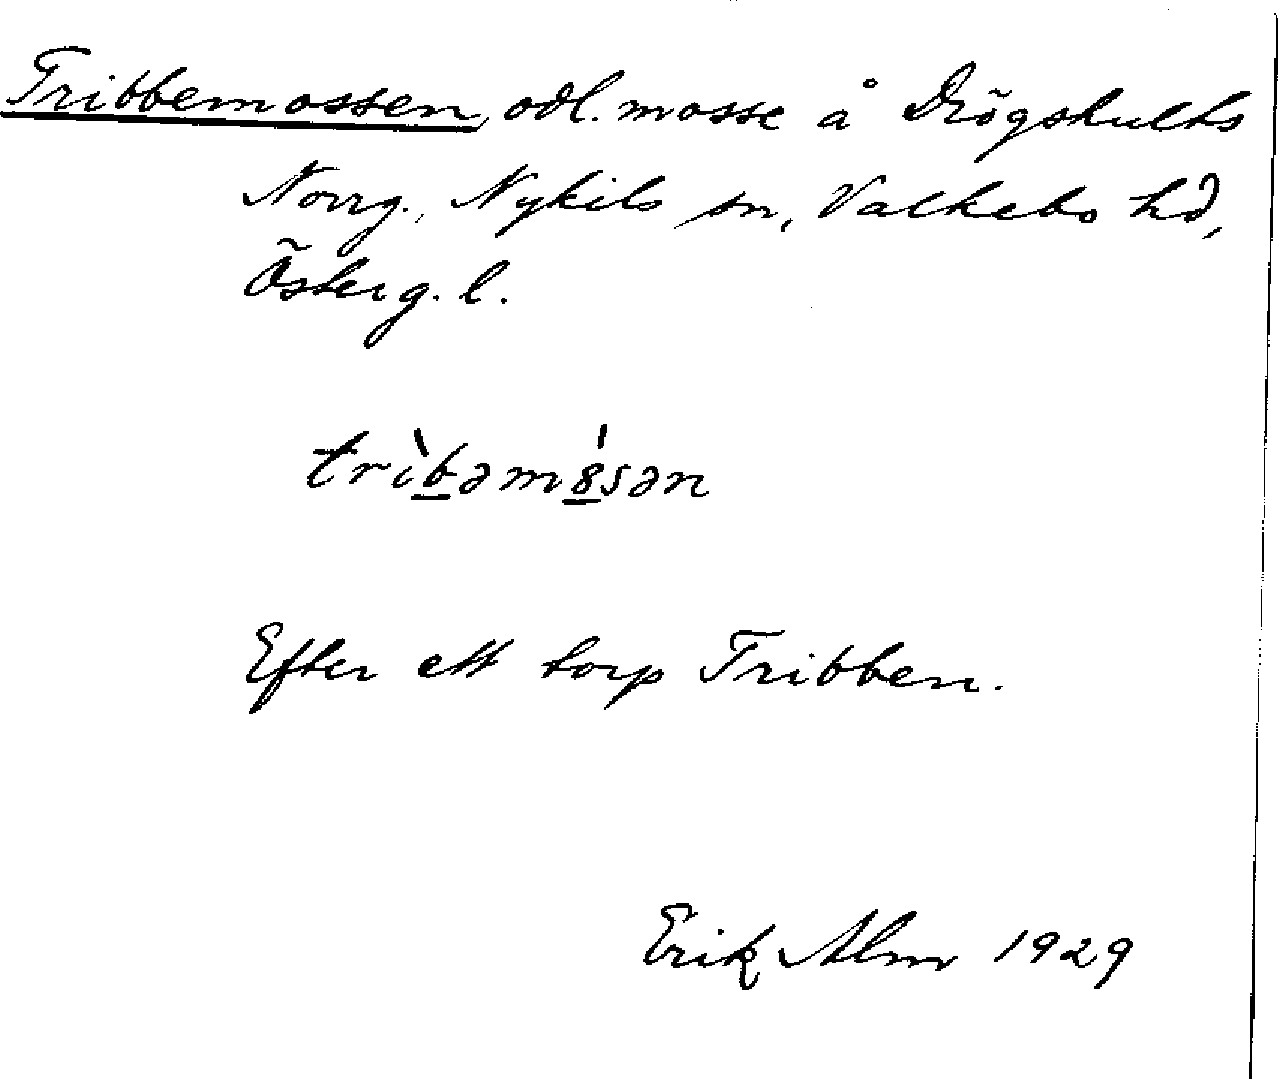 Tribbemossen, odl. mosse å Drögshults
Norrg., Nykils sn, Valkebo hd,
Österg. l.
trìbəmósən
Efter ett torp Tribben.
Erik Alm 1929